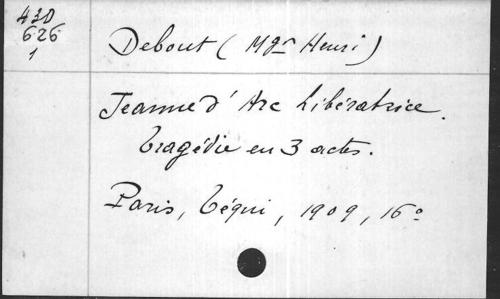 430
626
1
Debout (Mgr Henri)
Jeanne d'Arc Libératrice.
tragédie en 3 actes.
Paris, Téqui, 1909, 16°